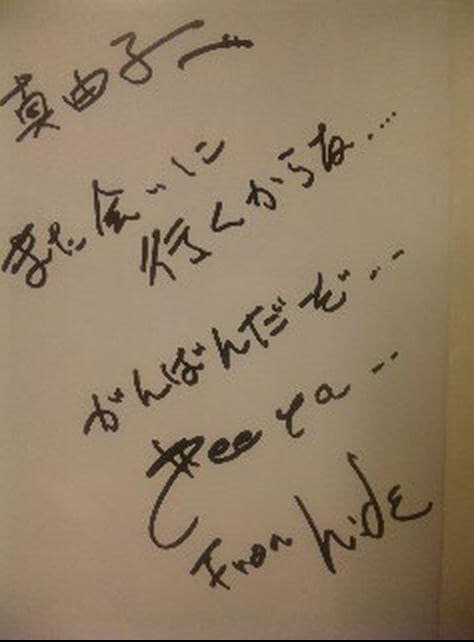 真由子ー
また会いに
行くからな....
がんばんだぞ...
See ya...
From hide